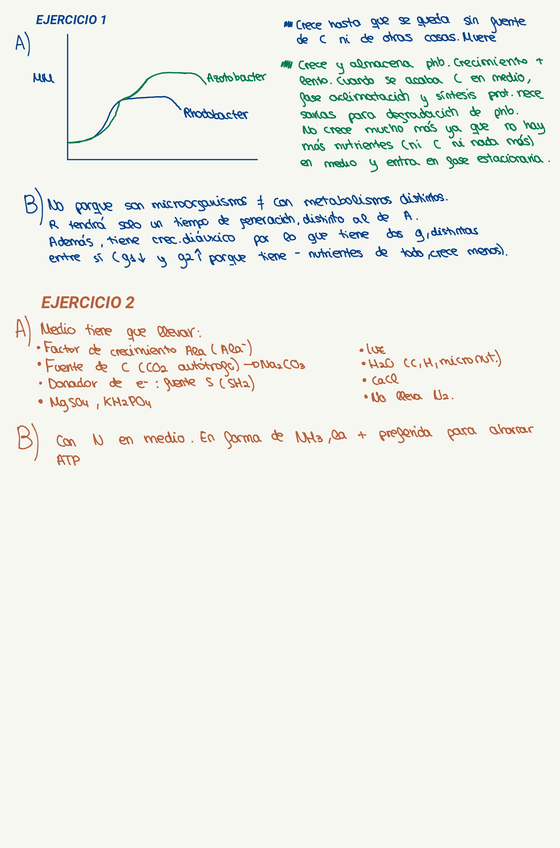 EJERCICIO 1
A)
MM
Azotobacter
Rhodobacter
Crece hasta que se queda sin fuente
de C ni de otras cosas. Muere
Crece y almacena phb. Crecimiento +
lento. Cuando se acaba C en medio,
fase aclimatación y síntesis prot. nece
sarias para degradación de phb.
No crece mucho más ya que no hay
más nutrientes (ni C ni nada más)
en medio y entra en fase estacionaria.
B) No porque son microorganismos ≠ con metabolismos distintos.
R tendrá solo un tiempo de generación, distinto al de A.
Además, tiene crec. diáuxico por lo que tiene dos g, distintas
entre sí (g1↓ y g2↑ porque tiene - nutrientes de todo, crece menos).
EJERCICIO 2
A) Medio tiene que llevar:
• Factor de crecimiento Ala (Ala⁻)
• Fuente de C (CO2 autótrofo) → Na2CO3
• Donador de e⁻ : fuente S (SH2)
• MgSO4, KH2PO4
• luz
• H2O (C, H, micronut.)
• CaCl
• No lleva N2.
B) Con N en medio. En forma de NH3, la + preferida para ahorrar
ATP